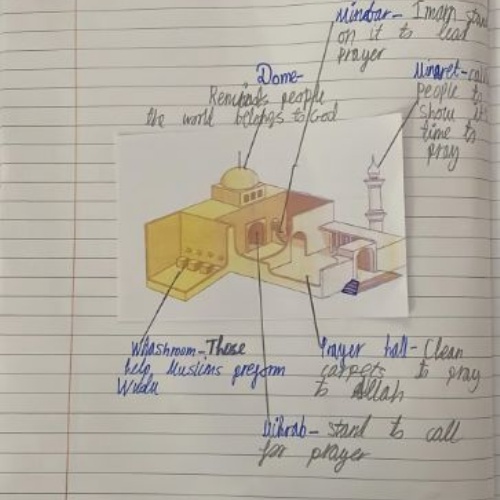 Minbar- Imam stand
on it to lead
prayer
Dome-
Reminds people
the world belongs to God
Minaret- call
people to
show it's
time to
pray
Whashroom- These
help Muslims preform
Wudu
Prayer hall- Clean
carpets to pray
to Allah
Mihrab- stand to call
for prayer